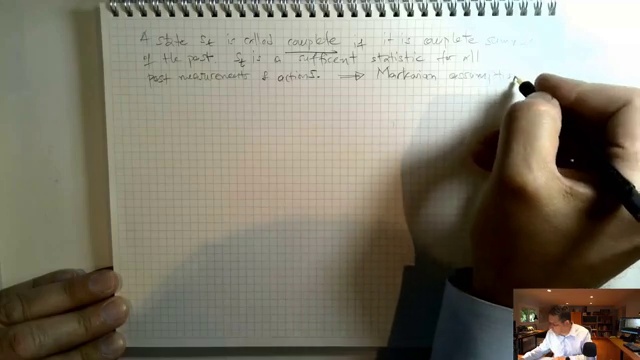 A state St is called complete if it is complete
of the past St is a sufficent statistic for all
past measurements & actions. ⟹ Markovian assumpti